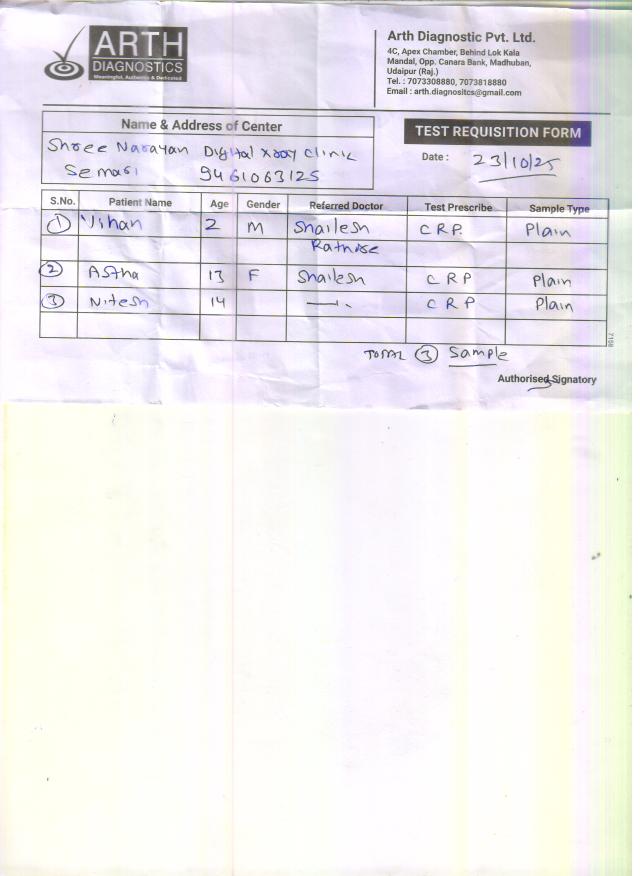 ARTH
DIAGNOSTICS
Meaningful, Authentic & Dedicated
Arth Diagnostic Pvt. Ltd.
4C, Apex Chamber, Behind Lok Kala
Mandal, Opp. Canara Bank, Madhuban,
Udaipur (Raj.)
Tel. : 7073308880, 7073818880
Email : arth.diagnositcs@gmail.com
Name & Address of Center
Shree Narayan Digital xray clinic
Semari 9461063125
TEST REQUISITION FORM
Date : 23/10/25
S.No. Patient Name Age Gender Referred Doctor Test Prescribe Sample Type
1 Vihan 2 M Shailesh CRP. Plain
2 Astha 13 F Shailesh CRP Plain
3 Nitesh 14 —,,— CRP Plain
TOTAL 3 Sample
Authorised Signatory
7158